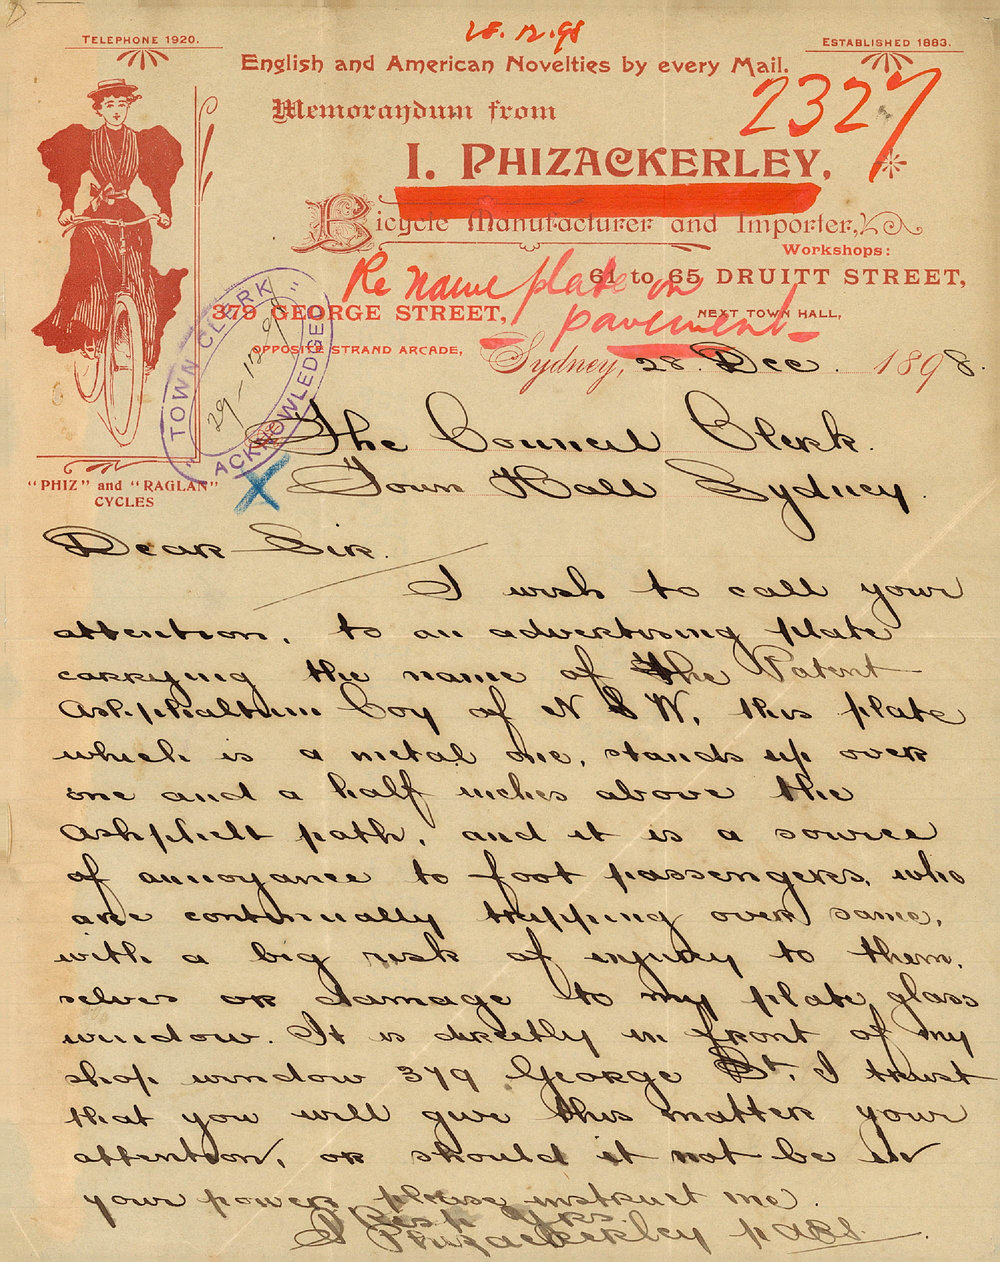 TELEPHONE 1920.
28.12.98
ESTABLISHED 1883.
English and American Novelties by every Mail.
2327
Memorandum from
I. PHIZACKERLEY,
Bicycle Manufacturer and Importer,
Workshops:
61 to 65 DRUITT STREET,
Re name plate on
379 GEORGE STREET,
NEXT TOWN HALL,
pavement
OPPOSITE STRAND ARCADE,
Sydney, 28. Dec. 1898.
TOWN CLERK
29-12-98
ACKNOWLEDGED
"PHIZ" and "RAGLAN"
CYCLES
X
The Council Clerk.
Town Hall Sydney.
Dear Sir.
I wish to call your
attention, to an advertising plate
carrying the name of The Patent
Ashphaltum Coy of N S W, this plate
which is a metal one, stands up over
one and a half inches above the
Ashphelt path, and it is a source
of annoyance to foot passengers, who
are continually tripping over same,
with a big risk of injury to them.
selves or damage to my plate glass
window. It is directly in front of my
shop window 379 George St. I trust
that you will give this matter your
attention, or should it not be in
your power please instruct me.
Resp yrs.
I Phizackerley p